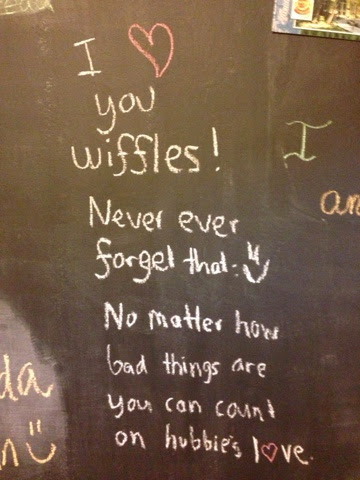 I ♡
you
wiffles!
Never ever
forget that :)
No matter how
bad things are
you can count
on hubbie's l♡ve.
I
an
da
n :)